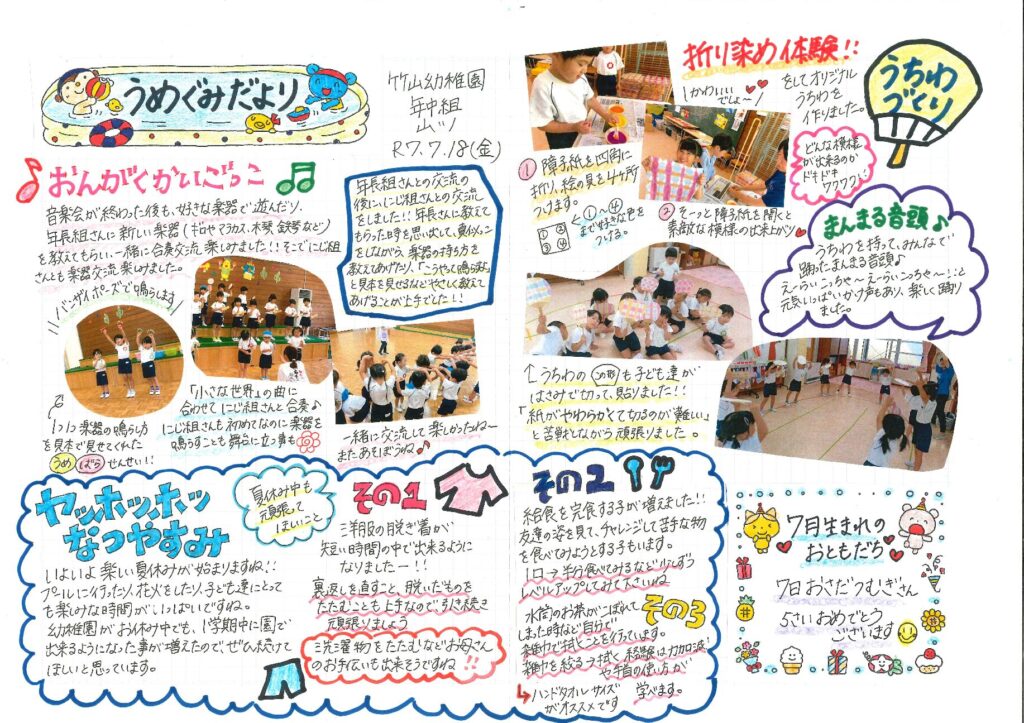 うめぐみだより
竹山幼稚園
年中組
R7.7.18(金)
おんがくかいごっこ
音楽会が終わった後も、好きな楽器で遊んだり、
年長組さんに新しい楽器(ギロやマラカス、木琴、鉄琴など)
を教えてもらい、一緒に合奏交流楽しみました!!そこでにじ組
さんとも楽器交流楽しみました。
年長組さんとの交流の
後に、にじ組さんとの交流
をしました!!年長さんに教えて
もらった時を思い出して、真似っこ
をしながら、楽器の持ち方を
教えてあげたり、「こうやって鳴らすよ」
と見本を見せるなどやさしく教えて
あげることが上手でした!!
バンザイポーズで鳴らします
1つ1つ楽器の鳴らし方
を見本で見せてくれた
うめ ばら せんせい!!
「小さな世界」の曲に
合わせてにじ組さんと合奏♪
にじ組さんも初めてなのに楽器を
鳴らすことも舞台に立つ事も
一緒に交流して楽しかったね〜
またあそぼうね♪
折り染め体験!!
かわいい
でしょ〜!
をしてオリジナル
うちわを
作りました。
うちわ
づくり
どんな模様
が出来るのか
ドキドキ
ワクワク!
① 障子紙を四角に
折り、絵の具を4ヶ所
つけます。
①〜④
まで好きな色を
つける。
① ②
③ ④
② そーっと障子紙を開くと
素敵な模様の出来上がり
まんまる音頭♪
うちわを持って、みんなで
踊ったまんまる音頭♪
え〜らいこっちゃ〜え〜らいこっちゃ〜!!と
元気いっぱいかけ声もあり、楽しく踊り
ました。
↑うちわの この形 も子ども達が
はさみで切って、貼りました!!
「紙がやわらかくて切るのが難しい」
と苦戦しながら頑張りました。
ヤッホッホッ
なつやすみ
夏休み中も
頑張って
ほしいこと
いよいよ楽しい夏休みが始まりますね!!
プールに行ったり、花火をしたり、子ども達にとって
も楽しみな時間がいっぱいですね。
幼稚園がお休み中でも、1学期中に園で
出来るようになった事が増えたので、ぜひ続けて
ほしいと思っています。
その1
洋服の脱ぎ着が
短い時間の中で出来るように
なりましたー!!
裏返しを直すこと、脱いだものを
たたむことも上手なので、引き続き
頑張りましょう
洗濯物をたたむなどお母さん
のお手伝いも出来そうですね!!
その2
給食を完食する子が増えました!!
友達の姿を見て、チャレンジして苦手な物
を食べてみようとする子もいます。
1口→半分食べてみるなど少しずつ
レベルアップしてみて下さいね
その3
水筒のお茶がこぼれて
しまった時など自分で
雑巾で拭くことを行っています。
雑巾を絞る、拭く経験は力加減
や手首の使い方が
学べます。
↳ハンドタオルサイズ
がオススメです
7月生まれの
おともだち
7日おさだつむぎさん
5さいおめでとう
ございます